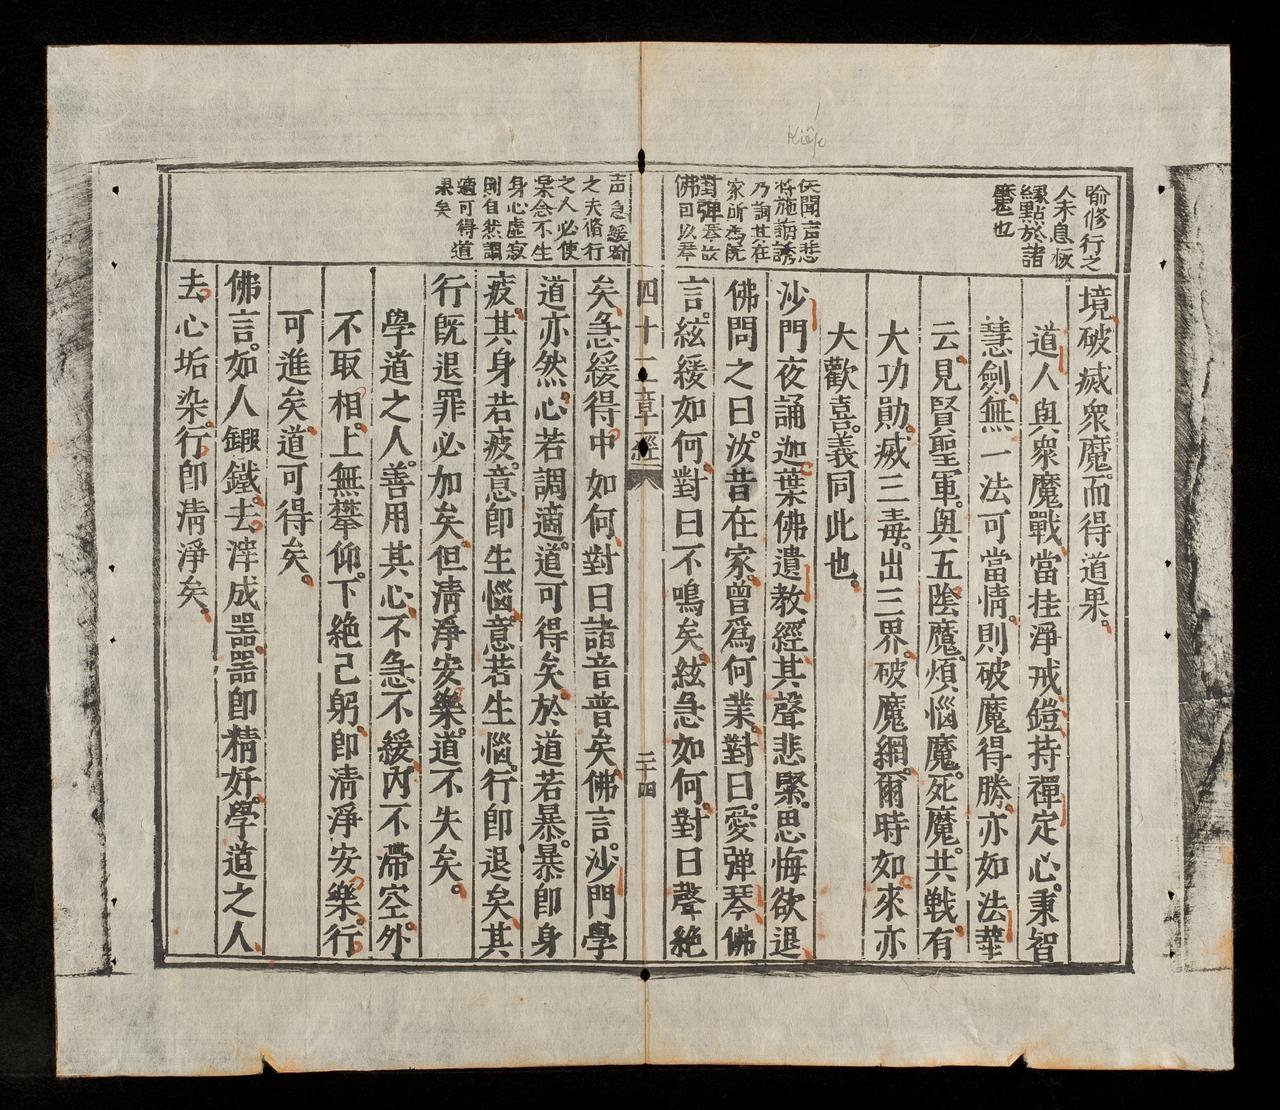 Kiếp
喻修行之
人未息被
緣點於諸
魔也
境破滅衆魔而得道果
道人與衆魔戰當挂淨戒鎧持禪定心秉智
慧劍無一法可當情則破魔得勝亦如法華
云見賢聖軍與五陰魔煩惱魔死魔共戰有
大功勛滅三毒出三界破魔網爾時如來亦
大歡喜義同此也
仸聞声悲
將施誦誘
乃詢其在
家所為既
對弹琴故
佛回以琴
沙門夜誦迦葉佛遺教經其聲悲緊思悔欲退
佛問之曰汝昔在家曾爲何業對曰愛弹琴佛
言絃緩如何對曰不鳴矣絃急如何對曰聲絶
四十二章經
二十四
声急緩喻
之夫脩行
之人必使
杲念不生
身心虛寂
則自然調
適可得道
果矣
矣急緩得中如何對曰諸音普矣佛言沙門學
道亦然心若調適道可得矣於道若暴暴卽身
疲其身若疲意卽生惱意若生惱行卽退矣其
行旣退罪必加矣但淸淨安樂道不失矣
學道之人善用其心不急不緩內不滯空外
不取相上無攀仰下絶己躬卽淸淨安樂行
可進矣道可得矣
佛言如人鍛鐵去滓成噐噐卽精好學道之人
去心垢染行卽淸淨矣